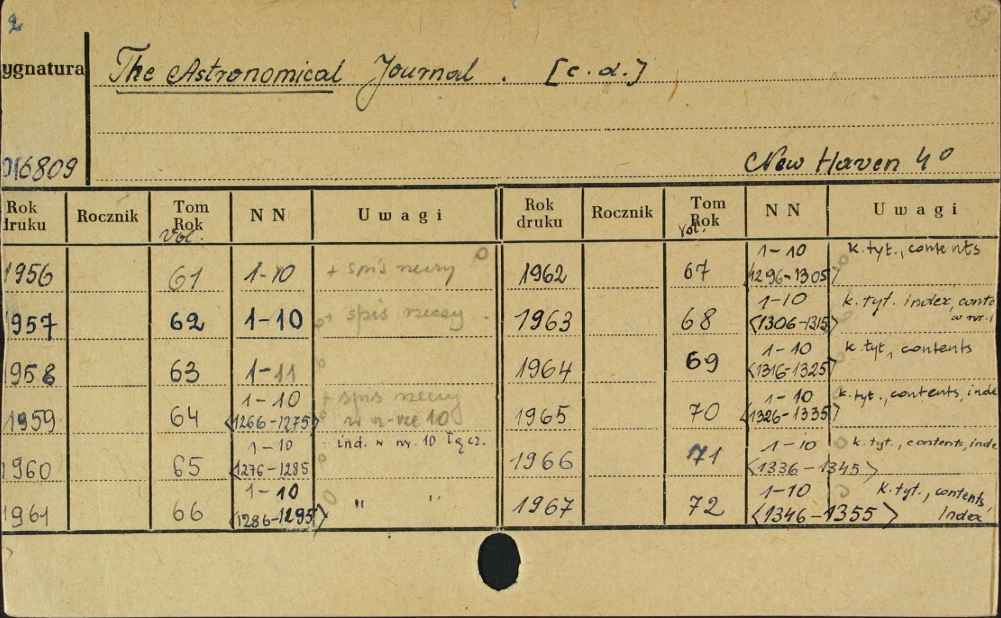 2
ygnatura The Astronomical Journal . [c.d.]
016809 New Haven 4º
Rok druku Rocznik Tom Rok vol. N N Uwagi Rok druku Rocznik Tom Rok vol. N N Uwagi
1956 61 1-10 + spis rzeczy 1962 67 1-10 <1296-1305> k. tyt., contents
1957 62 1-10 + spis rzeczy 1963 68 1-10 <1306-1315> k. tyt. index, conte
1958 63 1-11 1964 69 1-10 <1316-1325> k. tyt, contents
1959 64 1-10 <1266-1275> + spis rzeczy w n-rze 10 1965 70 1-10 <1326-1335> k. tyt., contents, inde
1960 65 1-10 <1276-1285 ind. w nr. 10 łącz. 1966 71 1-10 <1336-1345> k. tyt., contents, inde
1961 66 1-10 <1286-1295> " " 1967 72 1-10 <1346-1355> k. tyt., contents, Index